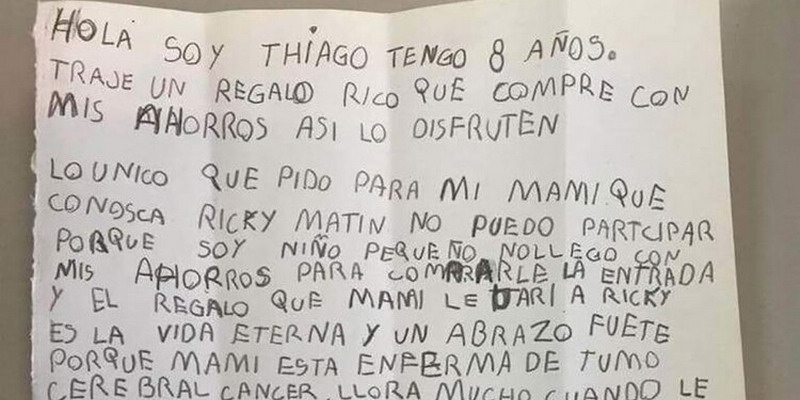 HOLA SOY THIAGO TENGO 8 AÑOS.
TRAJE UN REGALO RICO QUE COMPRE CON
MIS AHORROS ASI LO DISFRUTEN
LO UNICO QUE PIDO PARA MI MAMI QUE
CONOSCA RICKY MATIN NO PUEDO PARTCIPAR
PORQUE SOY NIÑO PEQUEÑO NOLLEGO CON
MIS AHORROS PARA COMPRARLE LA ENTRADA
Y EL REGALO QUE MAMI LE DARI A RICKY
ES LA VIDA ETERNA Y UN ABRAZO FUETE
PORQUE MAMI ESTA ENFERMA DE TUMO
CEREBRAL CANCER LLORA MUCHO CUANDO LE